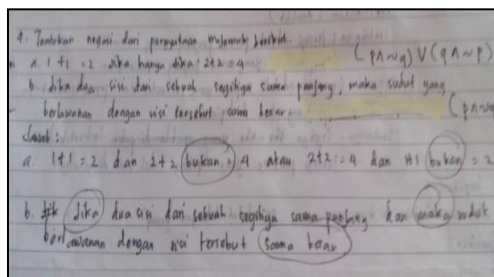 4. Tentukan negasi dari pernyataan majemuk berikut.
a. 1+1 = 2 jika hanya jika 2+2 = 4 (p∧~q) ∨ (q∧~p)
b. Jika dua sisi dari sebuah segitiga sama panjang, maka sudut yang
berlawanan dengan sisi tersebut sama besar. (p∧~
Jawab :
a. 1+1 = 2 dan 2+2 bukan = 4 atau 2+2 = 4 dan 1+1 bukan = 2
b. Jika dua sisi dari sebuah segitiga sama panjang dan maka sudut
berlawanan dengan sisi tersebut sama besar